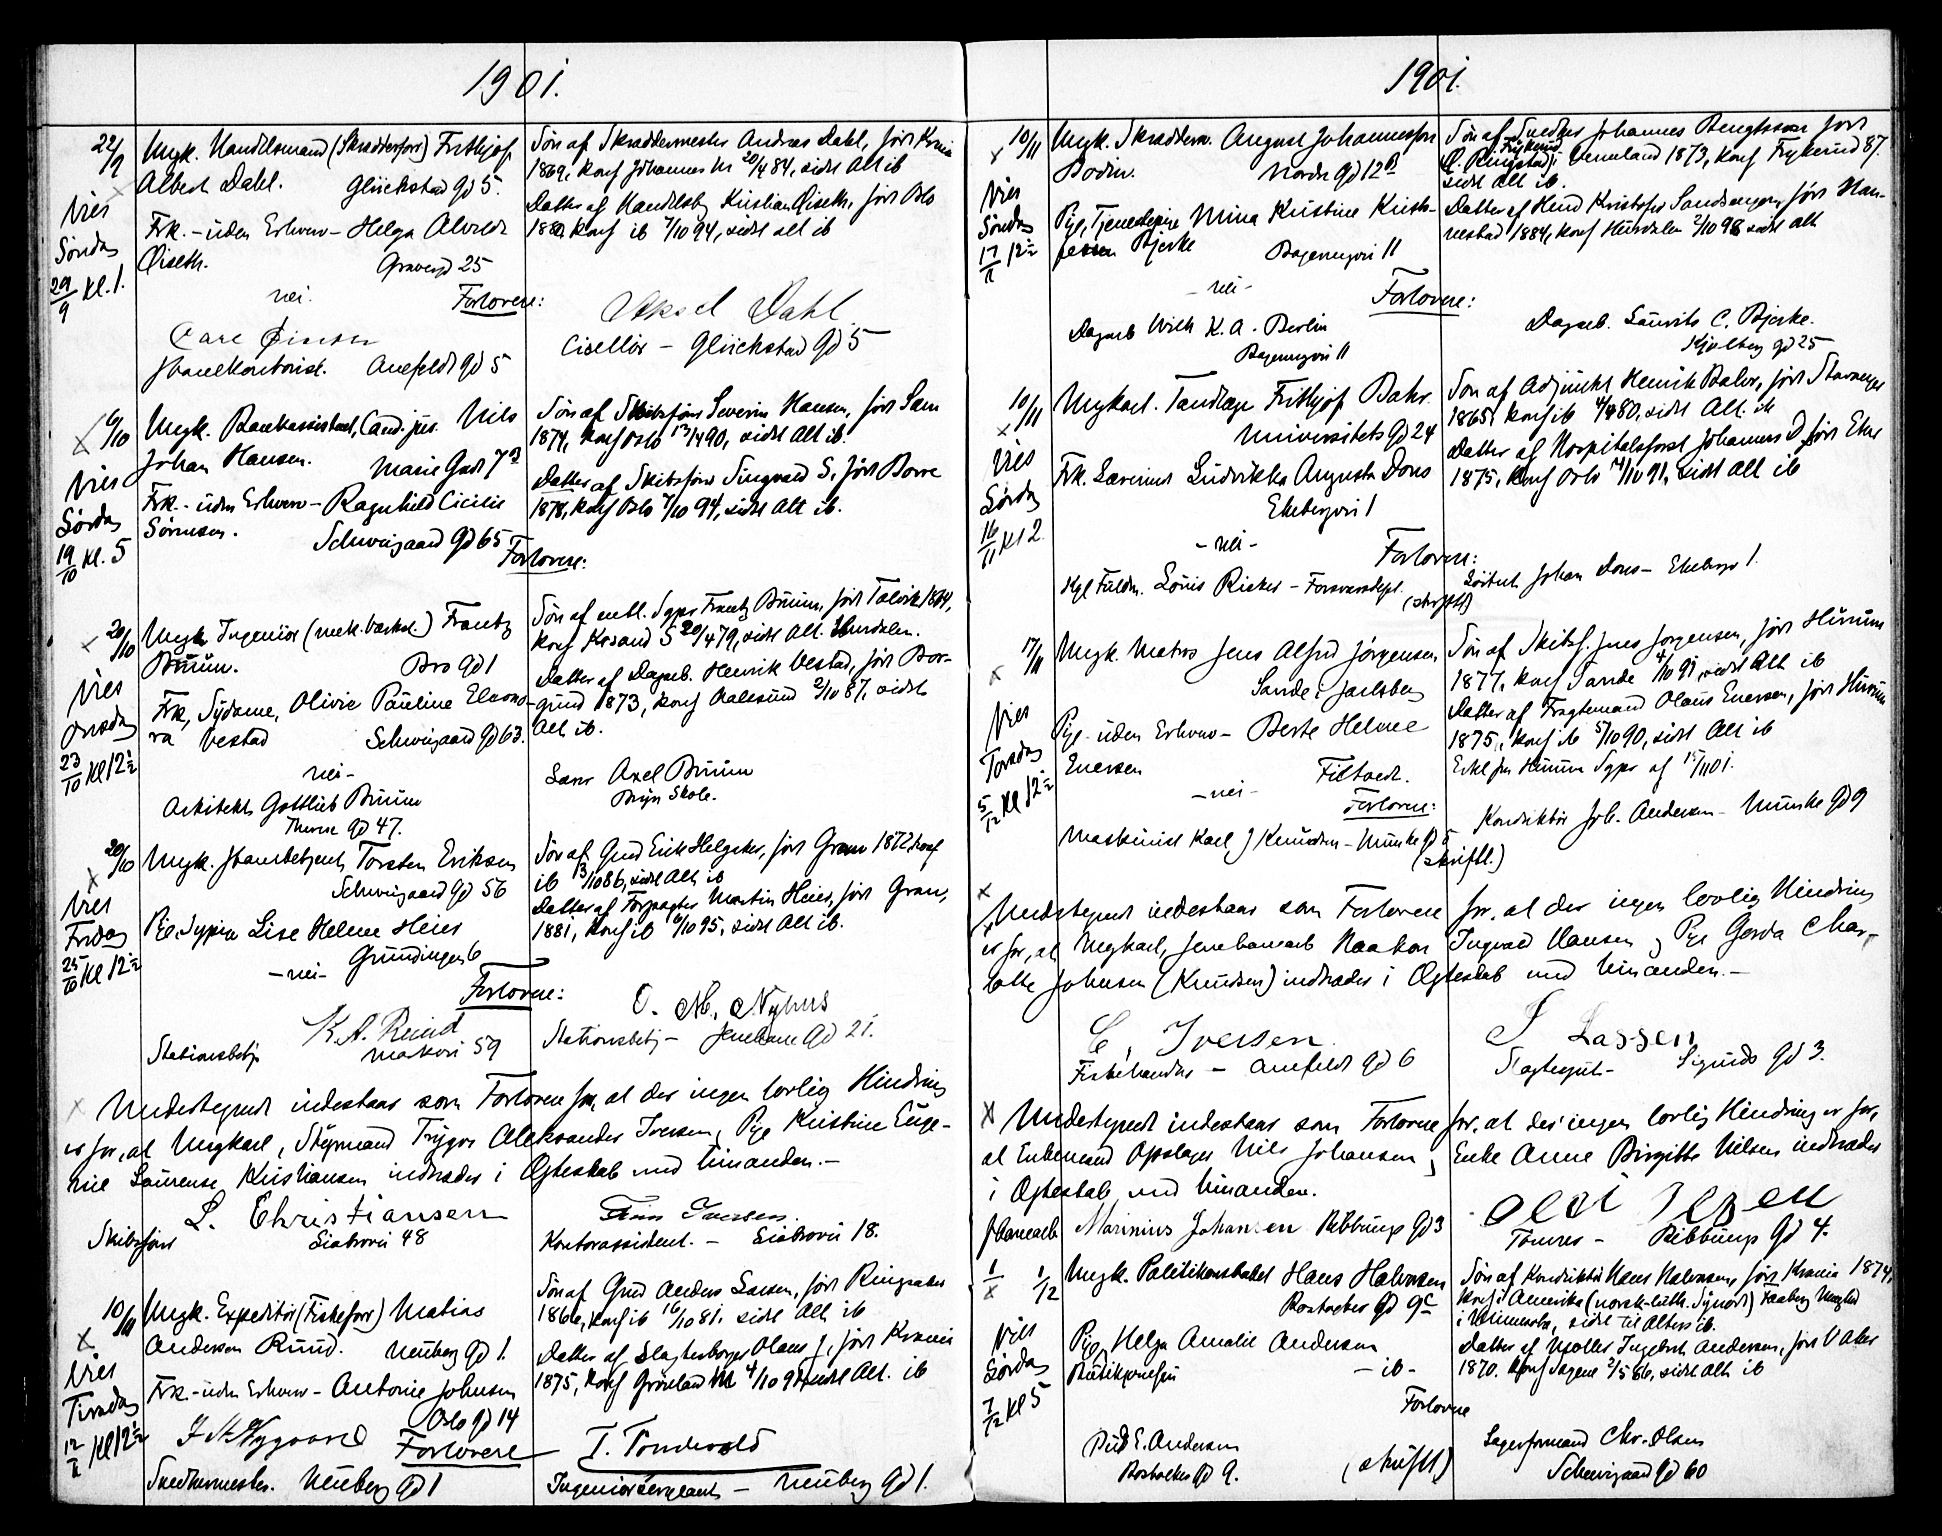 1901.
22/9
Ungk. Handelsmand (Skrædderforr) Frithjof
Albert Dahl. Glückstad Gd 5.
Søn af Skræddermester Andreas Dahl, født Kr.ania
1869, konf Johannes M 20/4 84, sidst Alt ib
Viet
Søndag
29/9 kl. 1.
Frk. - uden Erhverv - Helga Alvilde
Øiseth. 25
Datter af Handelsb Kristian Øiseth, født Oslo
konf ib 7/10 94, sidst alt ib
nei. Forlovere:
Carl
Aksel Dahl
Anefeldt Gd 5
Cisellør - Glückstad Gd 5
6/10
Ungk. Bankassistent, Cand. jus. Nils
Johan Hansen. Marie Gade 7 B
Søn af Skibsfører Severin Hansen, født Sem
1874, konf Oslo 13/4 90, sidst Alt ib.
Viet
Lørdag
19/10 kl. 5
Frk. - uden Erhverv - Ragnhild Cicilie
Sørensen. Schweigaard Gd 65
Datter af Skibsfører Singvard S, født Borre
1878, konf Oslo 7/10 94, sidst Alt ib.
Forlovere:
20/10
Ungk Ingeniør (mek. Værksd.) Frantz
Bruun. Bro Gd 1
Søn af entl. Sgpr Frantz Bruun, født Talvik
konf Krsand S 20/4 79, sidst Alt. Hurdalen.
Viet
Onsdag
23/10 kl 12 1/2
Frk, Sydame, Olivie Pauline Eleono-
ra Vestad Schweigaard Gd 63.
Datter af Dagarb. Henrik Vestad, født Bor-
gund 1873, konf Aalesund 2/10 87, sidst
Alt ib.
nei -
Arkitekt Gottlieb Bruun
Theres Gd 47.
Lærer Axel Bruun
Bryn Skole.
20/10
Ungk. Jernbanebetjent Torsten Eriksen
Schweigaard Gd 56
Søn af Grd Erik Helgeker, født Gran 1872, konf
ib 3/10 86, sidst Alt ib
Viet
Fredag
25/10 kl 12 1/2
Pige, Sypige Lise Helene Heier
Grundingen 6
Datter af Forpagter Martin Heier, født Gran,
1881, konf ib 6/10 95, sidst Alt ib.
- nei - Forlovere:
K. A. Ruud
Stationsbetj
O. M. Nyhus
Stationsbetj - Jernbane Gd 21.
Undertegnede indestaar som Forlovere for, at der ingen lovlig Hindring
er for, at Ungkarl, Styrmand Trygve Aleksander Iversen, Pige Kristine Euge-
nie Laurense Kristiansen indtræder i Ægteskab med hinanden. -
L. Christiansen
Skibsfører
48
Finn Iversen
Kontorassistent. - 18.
10/11
Ungk. Expeditør (Fiskeforr) Matias
Andersen Ruud. Neuberg Gd 1.
Søn af Grd Anders Larsen, født Ringsaker
1866, konf ib 16/10 81, sidst Alt ib
Viet
Tirsdag
12/11 kl 12 1/2
Frk. - uden Erhverv - Antonie Johnsen
Oslo Gd 14
Datter af Slagterborger Olaus J, født Krania
1875, konf Grønland M 4/10 91, sidst Alt. ib
Forlovere
Snedkermester. Neuberg Gd 1
Neuberg Gd 1.
1901.
10/11
Ungk. Skrædderm. August Johannessen
Bodin. Nordre Gd 12 B
Søn af Snedker Johannes Bengtsson født
Frykerud
Vermland 1873, konf Frykerud 87.
sidst Alt ib.
Viet
Søndag
17/11 12 1/2
Pige, Tjenestepige Mina Kristine Krist-
Bjerke 11
Datter af Hmd Kristofer Sandsengen, født Nan-
nestad 1884, konf Hurdalen 2/10 98 sidst alt
- nei - Forlovere:
Dagarb Wilh K. A. Berlin
11
Dagarb. Laurits C. Bjerke.
Kjølberg gd 25
10/11
Ungkarl. Tandlæge Frithjof Bahr.
Universitets Gd 24
Søn af Adjunkt Henrik Bahr, født Stavanger
1865, konf ib 4/4 80, sidst Alt. ib
Viet
Lørdag
16/11 kl 2
Frk. Severine Ludvikka Augusta Dons
Ekebergvei 1
Datter af Hospitalsforst Johannes D, født Eker
1875, konf Oslo 14/10 91, sidst Alt ib
- nei - Forlovere:
Kgl Fuldm. Louis Ricker - Forsvarsdept.
(skriftl)
Johan Dons - Ekebergv 1.
17/11
Ungk. Matros Jens Alfred Jørgensen
Sande i Jarlsberg
Søn af Skibsf. Jens Jørgensen, født Hurum
1877, konf Sande 4/10 91, sidst Alt ib
Viet
Torsdag
5/12 kl 12 1/2
Pige - uden Erhverv - Berte Helene
Enersen Filtvedt.
Datter af Fragtemand Olaus Enersen, født Hurum
1875, konf ib 5/10 90, sidst Alt ib
Erkl fra Hurum Sgpr af 15/11 01.
- nei - Forlovere:
Maskinist Karl J Knudsen - Munke Gd 5
(skriftl.)
Konduktør Joh. Andersen - Munke Gd 9
Undertegnede indestaar som Forlovere for, at der ingen lovlig Hindring
er for, at Ungkarl, Jernbanearb Haakon Ingvald Hansen, Pige Gerda Char-
lotte Johnsen (Knudsen) indtræder i Ægteskab med hinanden. -
C. Iversen.
Fiskehandler - Anefeldt Gd 6
J Lassen
Sigurds Gd 3.
Undertegnede indestaar som Forlovere for, at der ingen lovlig Hindring er for,
at Enkemand Opslager Nils Johansen, Enke Anne Birgitte Nilsen indtræder
i Ægteskab med hinanden.
Jernbanearb Marinius Johansen Ribbungs Gd 3
Olai
Tømrer - Ribbungs Gd 4.
1/12
Ungk. Politikonstabel Hans Halvorsen
Rostocker Gd 9 C
Søn af Konduktør Hans Halvorsen, født Krania 1874,
konf i Amerika (norsk-luth. Synode)
i Minnesota, sidst til Alters ib.
Viet
Lørdag
7/12 kl 5
Pige, Helga Amalie Andersen
- ib -
Datter af Møller Ingebret Andersen, født V Aker
1870. konf Sagene 2/5 86, sidst Alt ib
Forlovere
E. Andersen
Rostocker Gd 9.
(skriftl)
Lagerformand Chr. Olsen
Schweigaard Gd 60